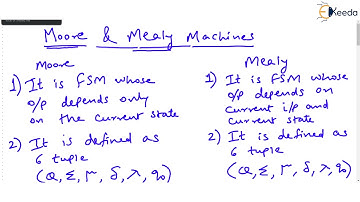 Ekeeda
Moore & Mealy Machines
Moore
1) It is FSM whose
o/p depends only
on the current state
2) It is defined as
6 tuple
(Q, Σ, Γ, δ, λ, q0)
Mealy
1) It is FSM whose
o/p depends on
current i/p and
current state
2) It is defined as
6 tuple
(Q, Σ, Γ, δ, λ, q0)